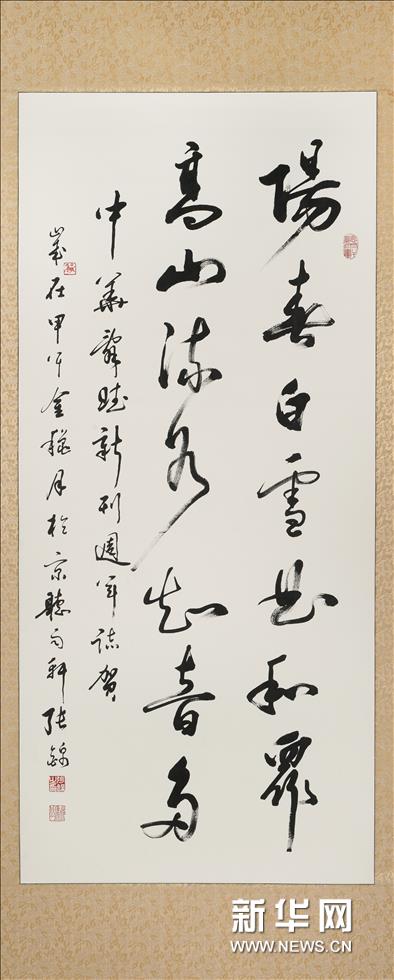 陽春白雪曲和眾
高山流水知音多
中華辭賦新刊週年誌賀
歲在甲午金秋月於京聽雨軒张錦
新华网
WWW.NEWS.CN